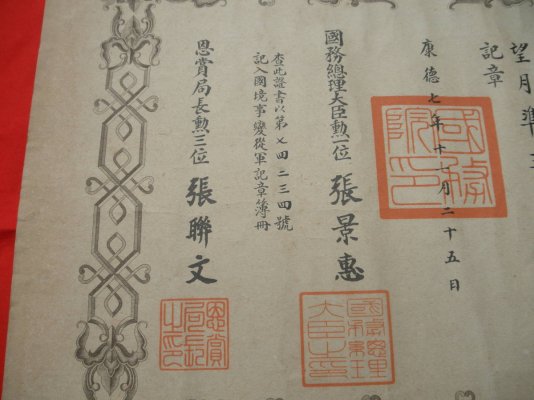 望月準
記章
康德七年十一月二十五日
國務院印
國務總理大臣勳一位 張景惠
國務總理大臣之印
查此證書以第七四二三四號
記入國境事變從軍記章簿冊
恩賞局長勳三位 張聯文
恩賞局長之印